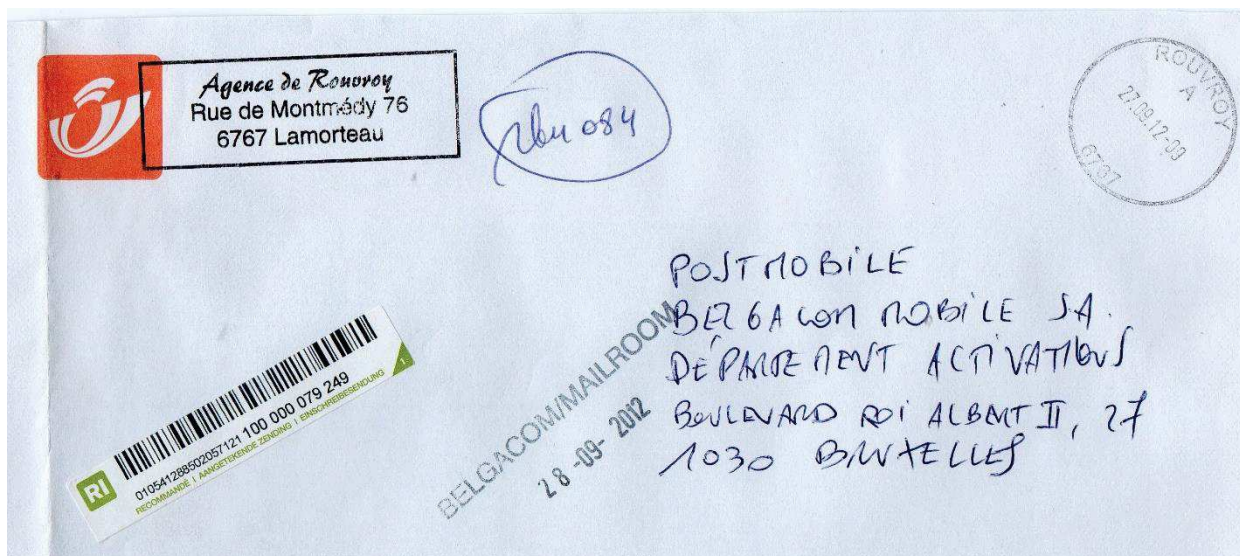 Agence de Rouvroy
Rue de Montmédy 76
6767 Lamorteau
084
ROUVROY
A
27.09.12-09
6767
POSTMOBILE
BELGACOM MOBILE SA.
DÉPARTEMENT ACTIVATIONS
BOULEVARD ROI ALBERT II, 27
1030 BRUXELLES
BELGACOM/MAILROOM
28-09-2012
RI
010541288502057121 100 000 079 249
RECOMMANDÉ | AANGETEKENDE ZENDING | EINSCHREIBESENDUNG
1